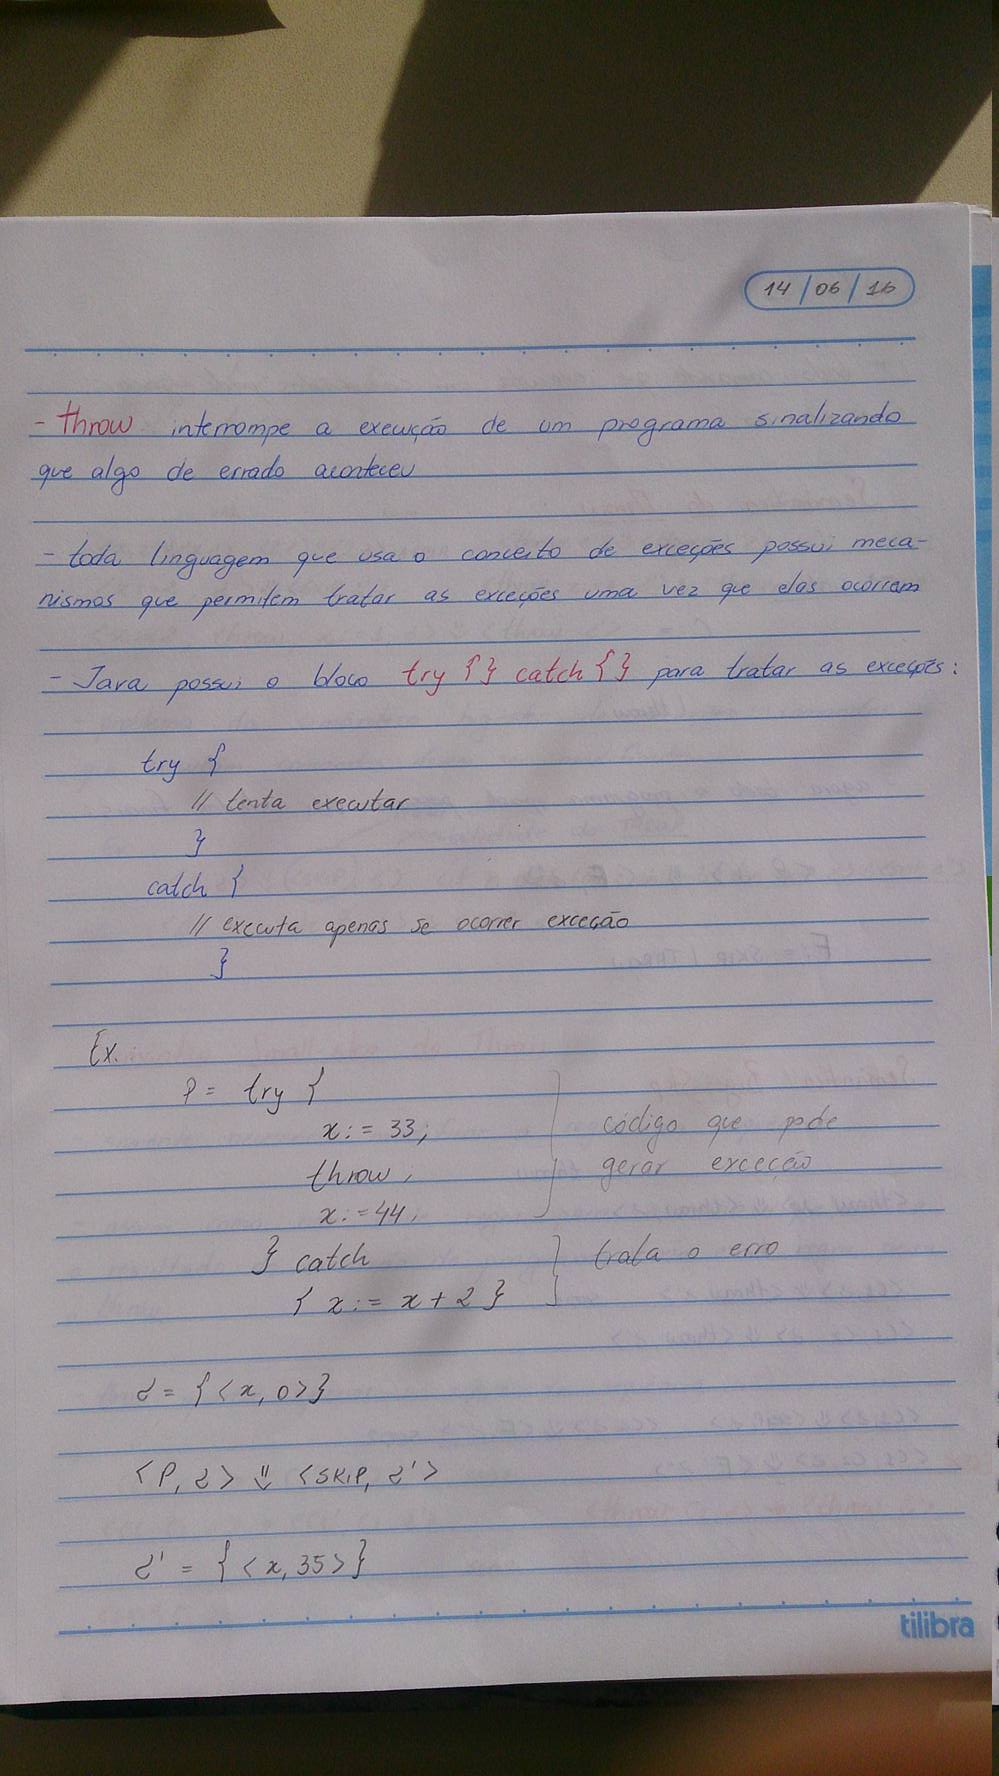 14 / 06 / 16
- throw interrompe a execução de um programa sinalizando
que algo de errado aconteceu
- toda linguagem que usa o conceito de exceções possui meca-
nismos que permitem tratar as exceções uma vez que elas ocorram
- Java possui o bloco try {} catch {} para tratar as exceções:
try {
// tenta executar
}
catch {
// executa apenas se ocorrer exceção
}
Ex.
P = try {
x := 33;
throw; código que pode
gerar exceção
x := 44;
} catch trata o erro
{ x := x + 2 }
σ = {<x, 0>}
<P, σ> ⇓ <SKIP, σ'>
σ' = {<x, 35>}
tilibra